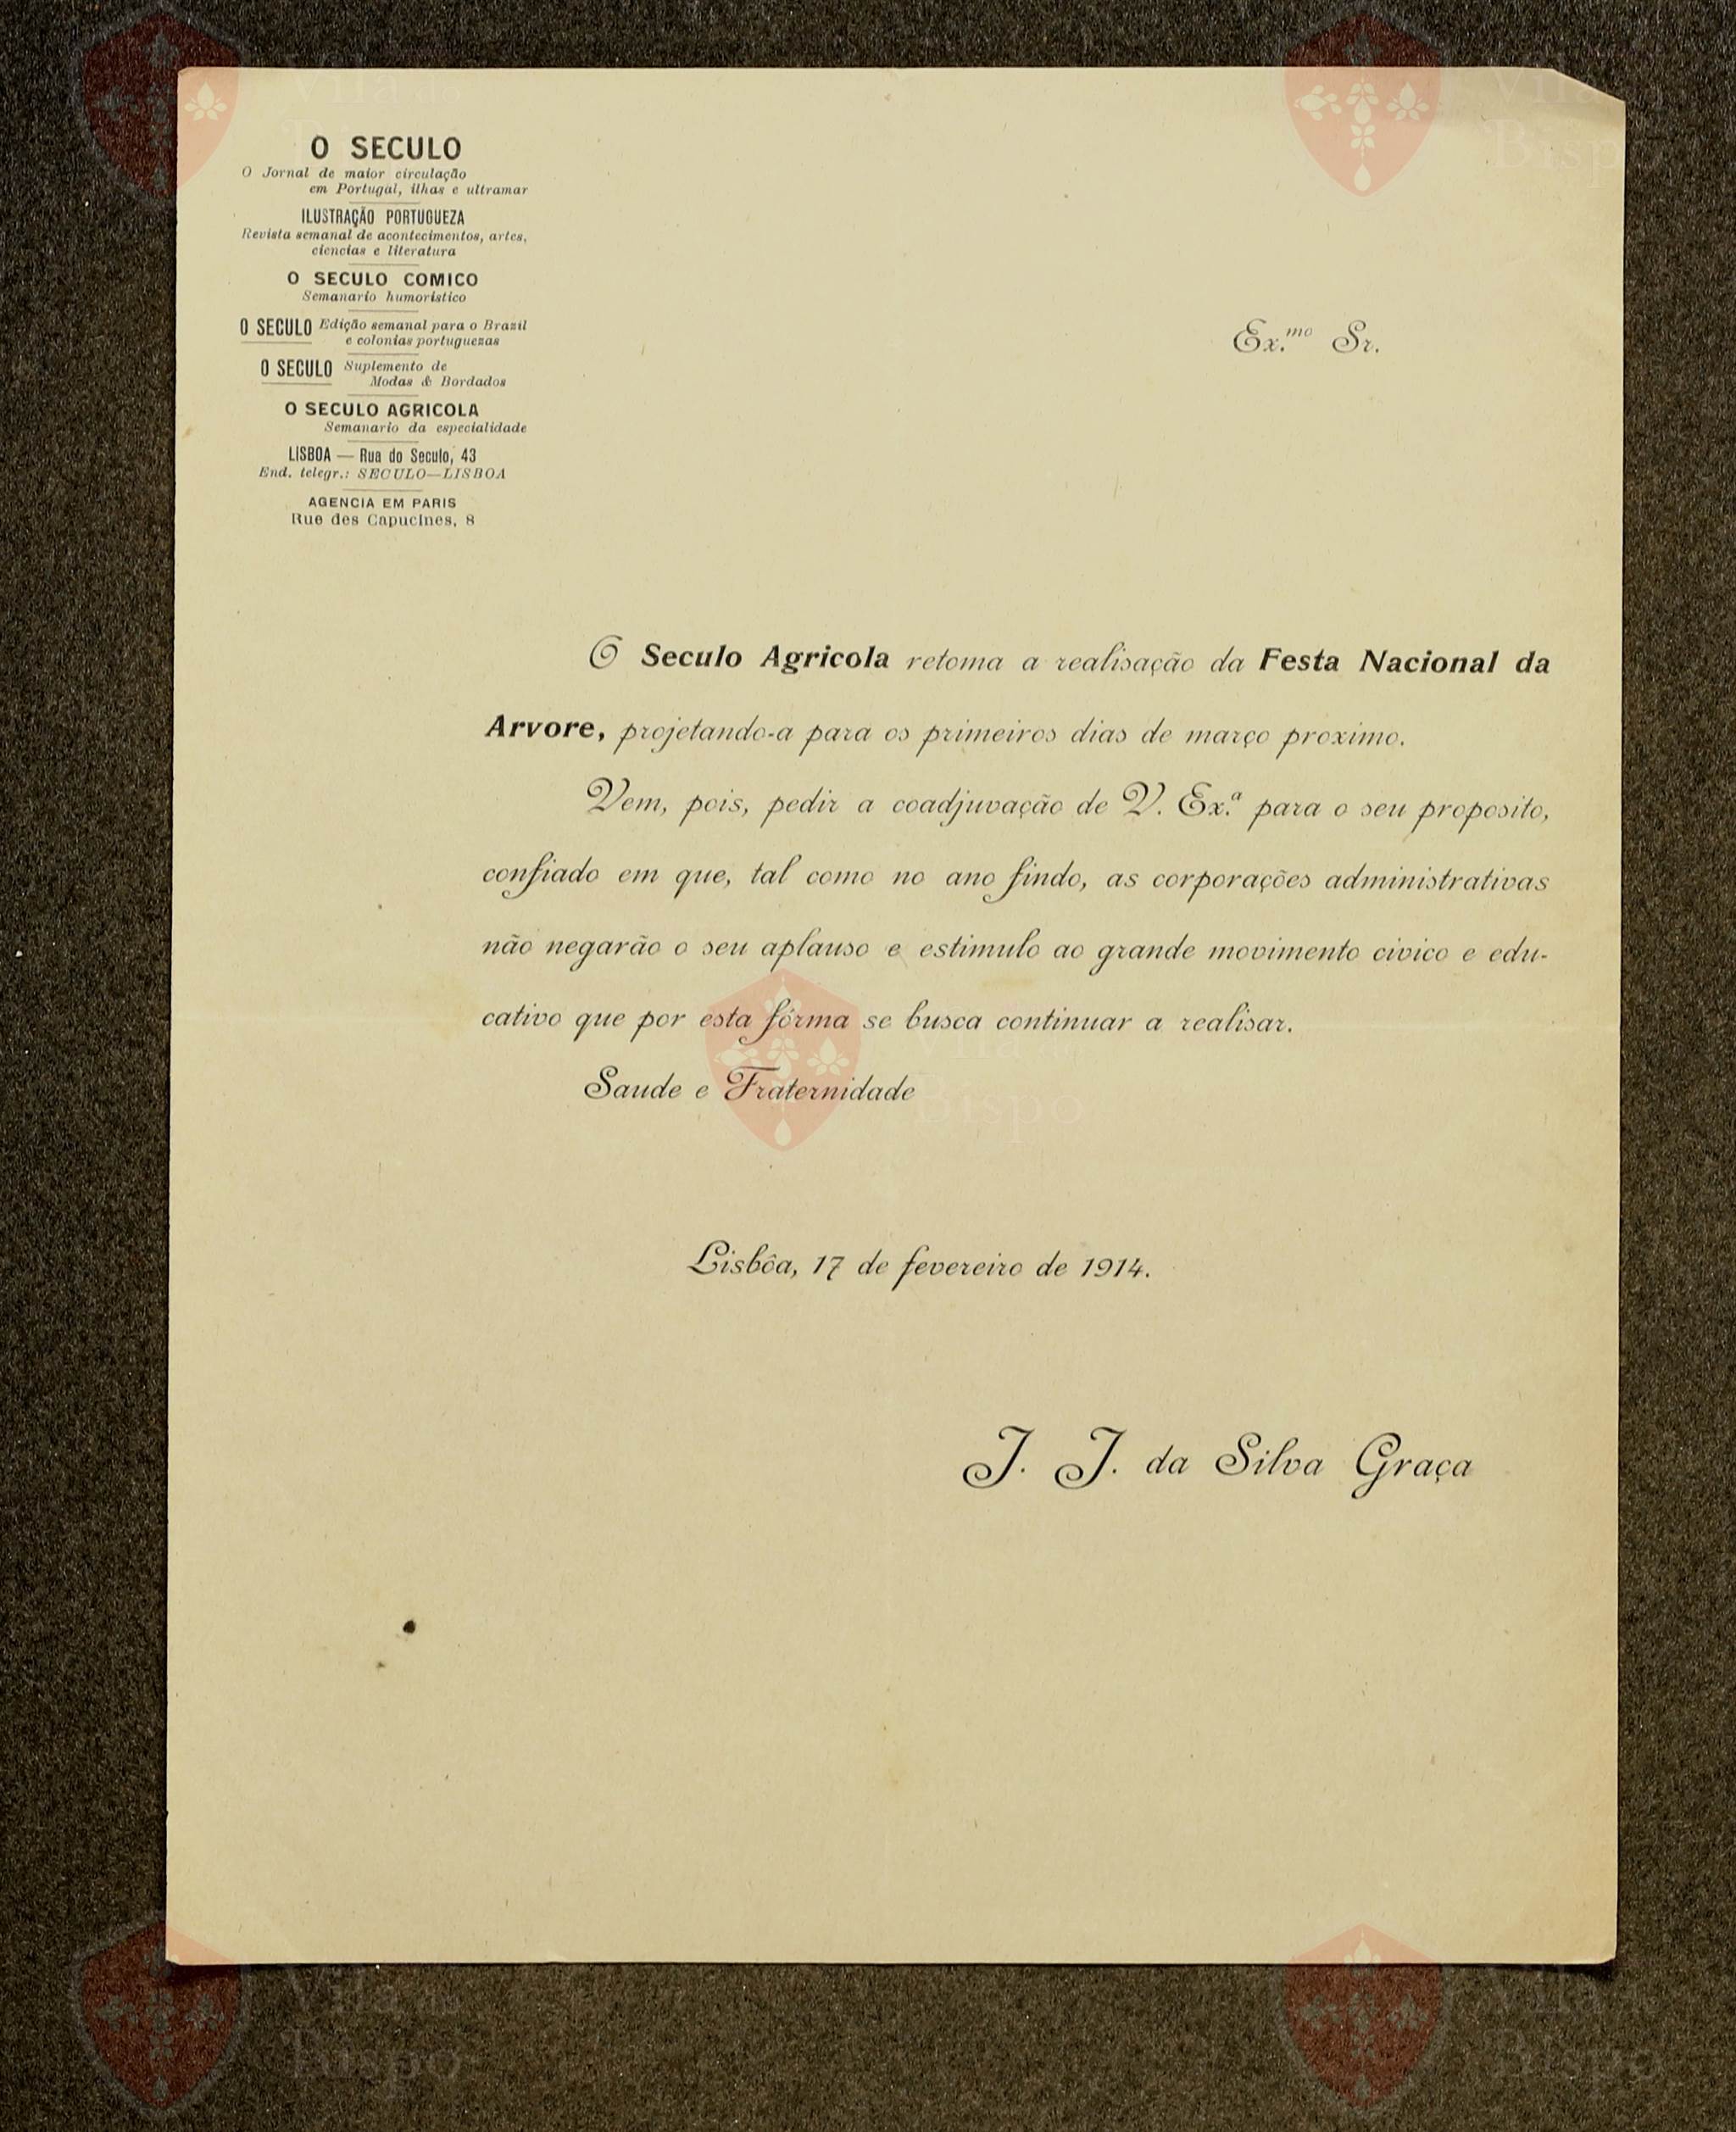 O SECULO
O Jornal de maior circulação
em Portugal, ilhas e ultramar
ILUSTRAÇÃO PORTUGUEZA
Revista semanal de acontecimentos, artes,
ciencias e literatura
O SECULO COMICO
Semanario humoristico
O SECULO Edição semanal para o Brazil
e colonias portuguezas
O SECULO Suplemento de
Modas & Bordados
O SECULO AGRICOLA
Semanario da especialidade
LISBOA — Rua do Seculo, 43
End. telegr.: SECULO—LISBOA
AGENCIA EM PARIS
Rue des Capucines, 8
Ex.mo Sr.
O Seculo Agricola retoma a realisação da Festa Nacional da
Arvore, projetando-a para os primeiros dias de março proximo.
Vem, pois, pedir a coadjuvação de V. Ex.ª para o seu proposito,
confiado em que, tal como no ano findo, as corporações administrativas
não negarão o seu aplauso e estimulo ao grande movimento civico e edu-
cativo que por esta fórma se busca continuar a realisar.
Saude e Fraternidade
Lisbôa, 17 de fevereiro de 1914.
J. J. da Silva Graça
Vila do
Bispo
Vila
Bisp
Vila do
Bispo
Vila do
Bispo
Vila do
Bispo